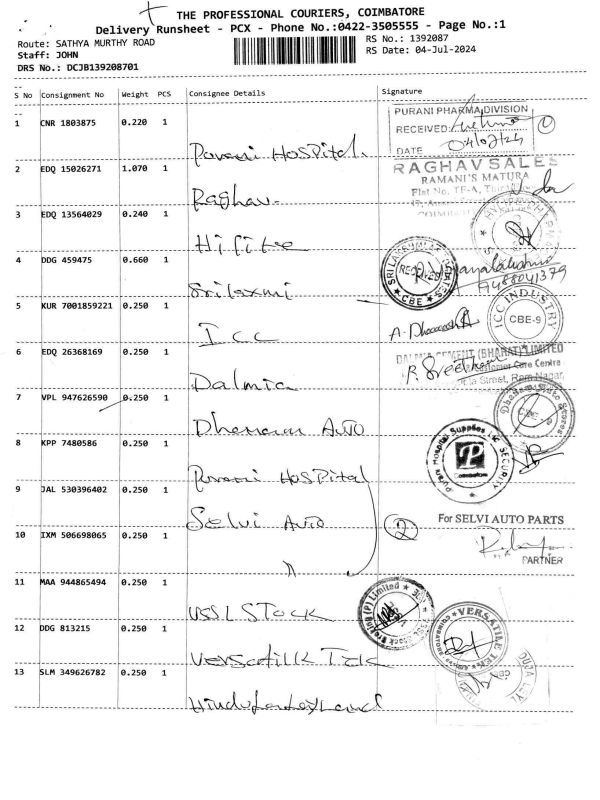 THE PROFESSIONAL COURIERS, COIMBATORE
Delivery Runsheet - PCX - Phone No.:0422-3505555 - Page No.:1
Route: SATHYA MURTHY ROAD
RS No.: 1392087
Staff: JOHN
RS Date: 04-Jul-2024
DRS No.: DCJB139208701
S No Consignment No Weight PCS Consignee Details Signature
1 CNR 1803875 0.220 1 Purani Hospital
PURANI PHARMA DIVISION
RECEIVED
DATE 04/07/24
2 EDQ 15026271 1.070 1 Raghav
RAGHAV SALES
RAMANI'S MATURA
3 EDQ 13564029 0.240 1 Hifite
4 DDG 459475 0.660 1 Srilaxmi
RECEIVED
CBE
5 KUR 7001859221 0.250 1 ICC
ICC INDUSTRY
CBE-9
6 EDQ 26368169 0.250 1 Dalmia
DALMIA CEMENT (BHARAT) LIMITED
Customer Care Centre
Street, Ram Nagar,
7 VPL 947626590 0.250 1 Dhanam Auto
8 KPP 7480586 0.250 1 Purani Hospital
Purani Hospital Supplies SECURITY
Coimbatore
9 JAL 530396402 0.250 1 Selvi Auto
2
For SELVI AUTO PARTS
10 IXM 506698065 0.250 1
PARTNER
11 MAA 944865494 0.250 1 USSL STOCK
12 DDG 813215 0.250 1 Versatilk Tek
VERSATILE TEK
13 SLM 349626782 0.250 1